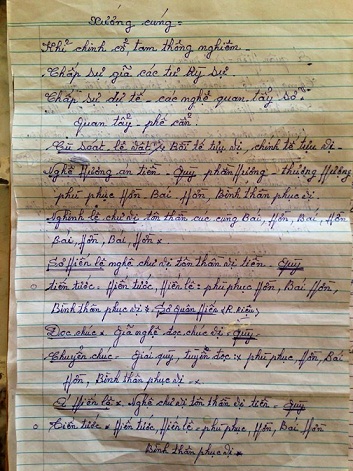 Xướng cúng =
Khỉ chinh cổ, tam thông nghiêm -
Chấp sự giả các tư kỳ sự
Chấp sự dự tế - các nghề quan tẩy sở =
Quan tẩy - phế cân
Củ soát lễ vật = Bồi tế tựu vị, chính tế tựu vị -
Nghệ hương án tiền - Quỵ phần hương - thượng hương
phủ phục Hưn - Bái - Hưn, Bình thân phục vị
Nghinh lễ chư vị tôn thần cúc cung Bái, Hưn, Bái, Hưn
Bái, Hưn, Bái, Hưn x
Sơ Hiến lễ nghệ chư vị tôn thần vị tiền - Quỵ
tiến tước = Hiến tước, Hiến lễ = phủ phục Hưn, Bái Hưn,
Bình thân phục vị * Sơ
Đọc chúc * Giả nghệ đọc chúc vị Quỵ -
Chuyển chúc - Giai quỵ, tuyên đọc = x phủ phục Hưn, Bái
Hưn, Bình thân phục vị - x
Á Hiến lễ x Nghệ chư vị tôn thần vị tiền - Quỵ
Tiến tước = Hiến tước, Hiến lễ = phủ phục, Hưn, Bái Hưn
Bình thân phục vị *